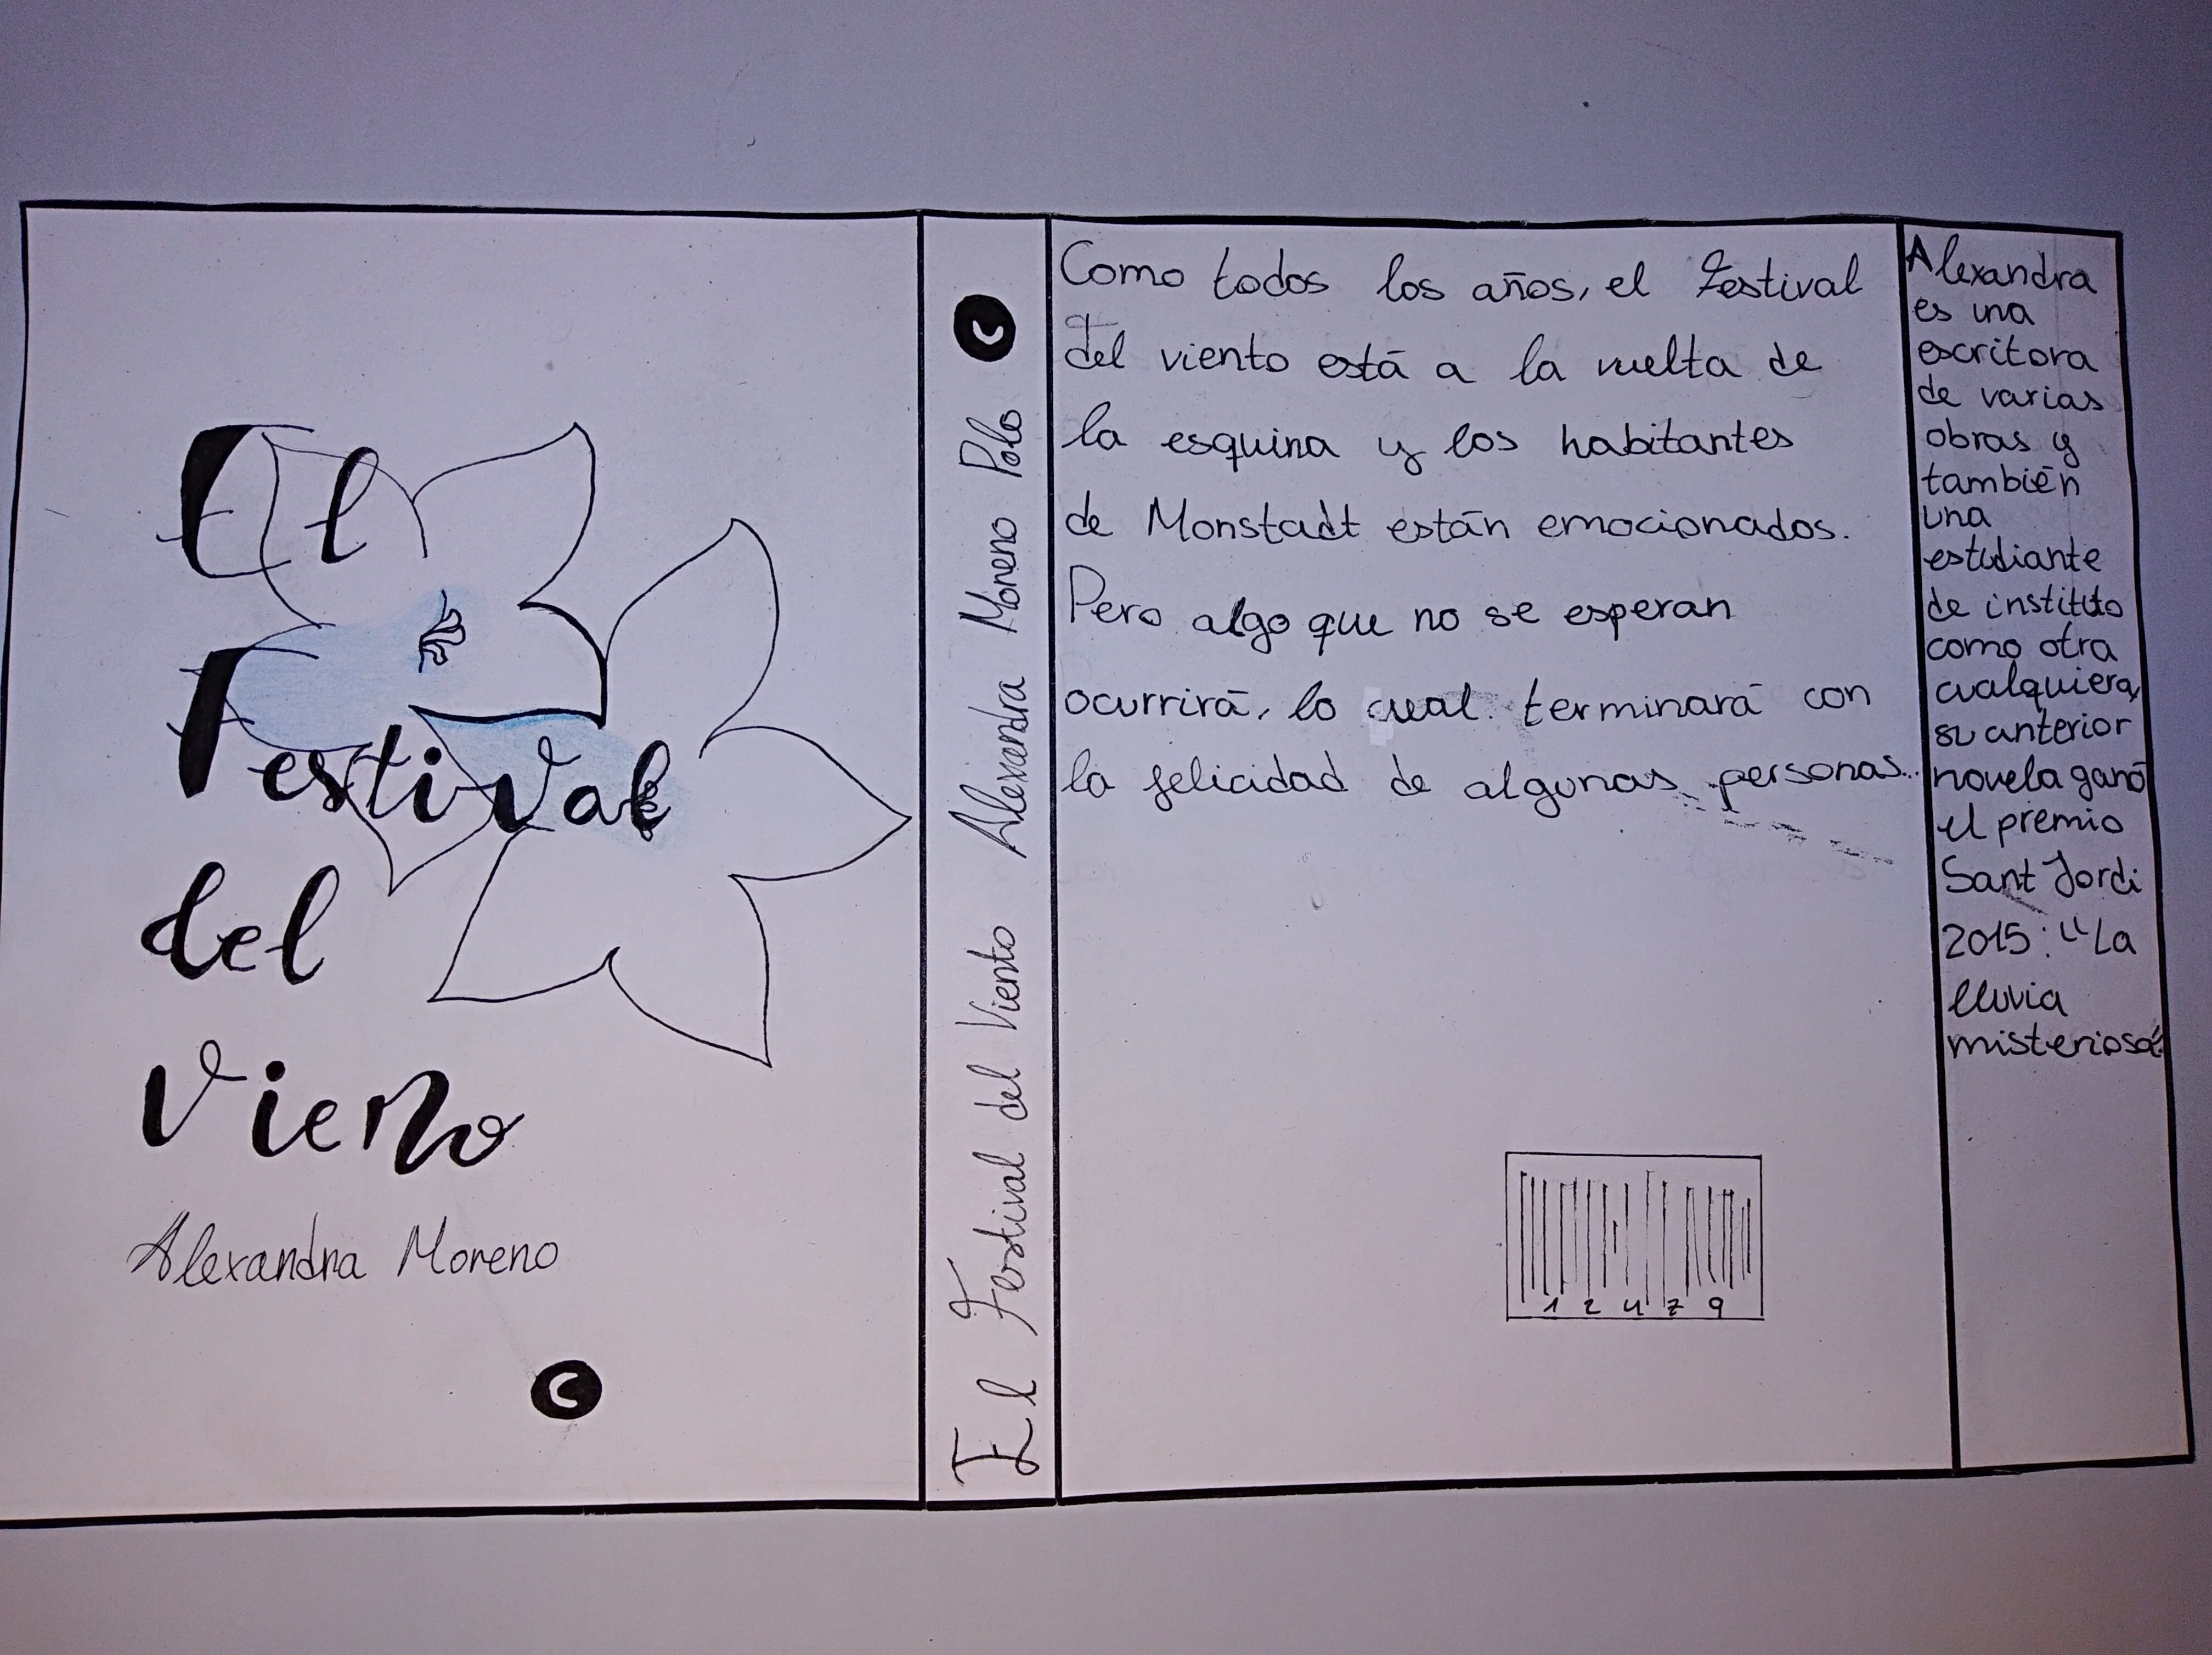 El
Festival
del
Viento
Alexandra Moreno
C
El Festival del Viento Alexandra Moreno Polo C
Como todos los años, el Festival
del viento está a la vuelta de
la esquina y los habitantes
de Monstadt están emocionados.
Pero algo que no se esperan
ocurrirá, lo cual terminará con
la felicidad de algunas personas...
1 2 4 7 9
Alexandra
es una
escritora
de varias
obras y
también
una
estudiante
de instituto
como otra
cualquiera,
su anterior
novela ganó
el premio
Sant Jordi
2015: "La
lluvia
misteriosa".